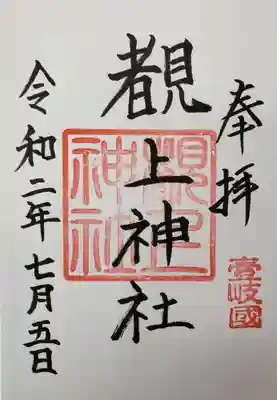 奉拝
壹岐國
覩上神社
覩上
神社
令和二年七月五日